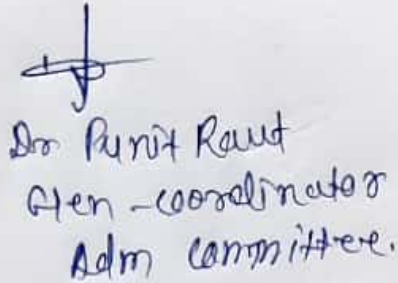 Dr Punit Raut
Gen-coordinator
Adm committee.